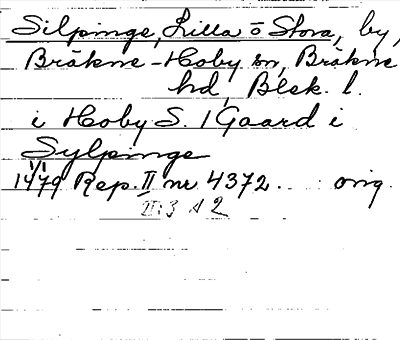 Silpinge, Lilla o Stora, by,
Bräkne-Hoby sn, Bräkne
hd, Blek. l.
i Hoby S. 1 Gaard i
Sylpinge
14/1 79 Rep. II nr 4372. orig.
II:3 s 2